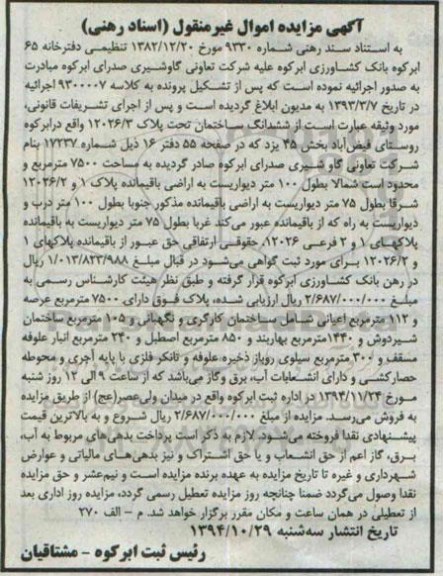 آگهی مزایده اموال غیرمنقول (اسناد رهنی)
به استناد سند رهنی شماره ۹۳۳۰ مورخ ۱۳۸۲/۱۲/۲۰ تنظیمی دفترخانه ۶۵
ابرکوه بانک کشاورزی ابرکوه علیه شرکت تعاونی گاوشیری صدرای ابرکوه مبادرت
به صدور اجرائیه نموده است که پس از تشکیل پرونده به کلاسه ۹۳۰۰۰۰۷ اجرائیه
در تاریخ ۱۳۹۳/۳/۷ به مدیون ابلاغ گردیده است و پس از اجرای تشریفات قانونی،
مورد وثیقه عبارت است از ششدانگ ساختمان تحت پلاک ۱۲۰۲۶/۳ واقع درابرکوه
روستای فیض‌آباد بخش ۴۵ یزد که در صفحه ۵۵ دفتر ۱۶ ذیل شماره ۱۷۲۳۷ بنام
شرکت تعاونی گاو شیری صدرای ابرکوه صادر گردیده به مساحت ۷۵۰۰ مترمربع و
محدود است شمالا بطول ۱۰۰ متر دیواریست به اراضی باقیمانده پلاک ۱ و ۱۲۰۲۶/۲
شرقا بطول ۷۵ متر دیواریست به اراضی باقیمانده مذکور جنوبا بطول ۱۰۰ متر درب و
دیواریست به راه که از باقیمانده عبور می‌کند غربا بطول ۷۵ متر دیواریست به باقیمانده
پلاکهای ۱ و ۲ فرعی ۱۲۰۲۶. حقوقس ارتفاقی حق عبور از باقیمانده پلاکهای ۱
و ۱۲۰۲۶/۲ برای مورد ثبت گواهی می‌شود در قبال مبلغ ۱/۰۱۳/۸۲۳/۹۸۸ ریال
در رهن بانک کشاورزی ابرکوه قرار گرفته و طبق نظر هیئت کارشناس رسمی به
مبلغ ۲/۶۸۷/۰۰۰/۰۰۰ ریال ارزیابی شده، پلاک فوق دارای ۷۵۰۰ مترمربع عرصه
و ۱۱۲ مترمربع اعیانی شامل ساختمان کارگری و نگهبانی و ۱۰۵ مترمربع ساختمان
شیردوش و ۱۴۴۰مترمربع بهاربند و ۸۵۰ مترمربع اصطبل و ۲۴۰ مترمربع انبار علوفه
مسقف و ۳۰۰ مترمربع سیلوی روباز ذخیره علوفه و تانکر فلزی با پایه آجری و محوطه
حصارکشی و دارای انشعابات آب، برق وگاز می‌باشد که از ساعت ۹ الی ۱۲ روز شنبه
مورخ ۱۳۹۴/۱۱/۲۴ در اداره ثبت ابرکوه واقع در میدان ولی‌عصر(عج) از طریق مزایده
به فروش می‌رسد. مزایده از مبلغ ۲/۶۸۷/۰۰۰/۰۰۰ ریال شروع و به بالاترین قیمت
پیشنهادی نقدا فروخته می‌شود. لازم به ذکر است پرداخت بدهی‌های مربوط به آب،
برق، گاز اعم از حق انشعاب و یا حق اشتراک و نیز بدهی‌های مالیاتی و عوارض
شهرداری و غیره تا تاریخ مزایده به عهده برنده مزایده است و نیم‌عشر و حق مزایده
نقدا وصول می‌گردد ضمنا چنانچه روز مزایده تعطیل رسمی گردد، مزایده روز اداری بعد
از تعطیلی در همان ساعت و مکان مقرر برگزار خواهد شد. م - الف ۲۷۰
تاریخ انتشار سه‌شنبه ۱۳۹۴/۱۰/۲۹
رئیس ثبت ابرکوه - مشتاقیان